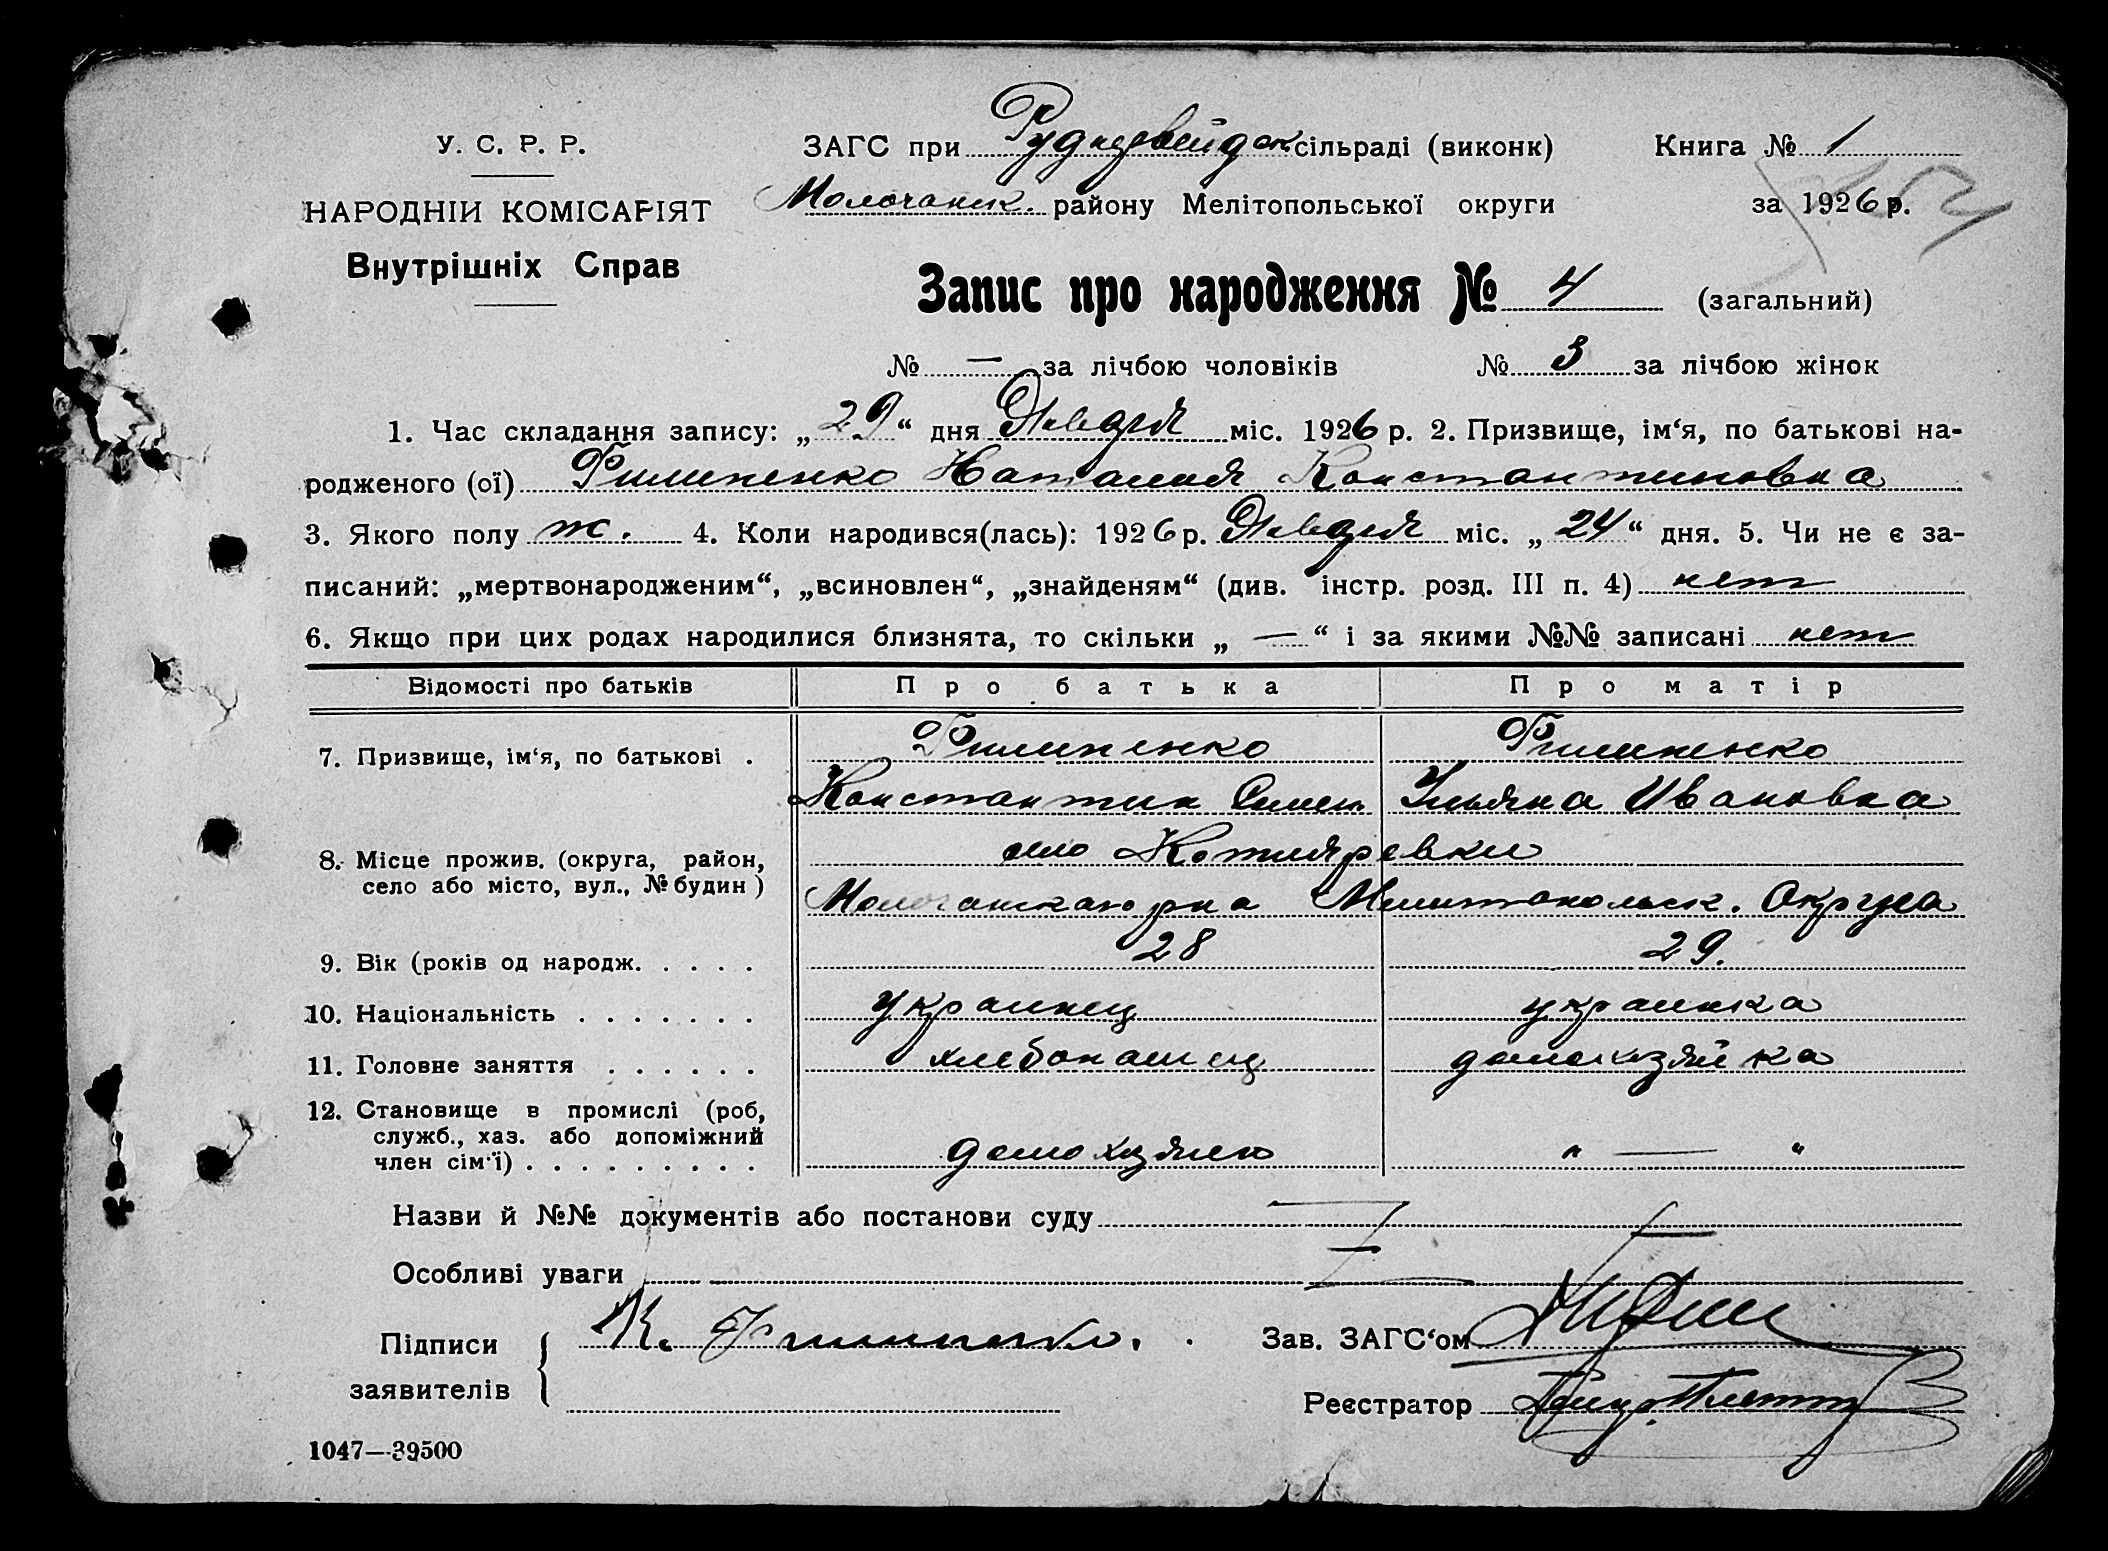 У. С. Р. Р.
НАРОДНІЙ КОМІСАРІЯТ
Внутрішніх Справ
ЗАГС при Руднервейдск сільраді (виконк) Книга № 1
Молочанск. району Мелітопольської округи за 1926 р.
Запис про народження № 4 (загальний)
№ — за лічбою чоловіків № 3 за лічбою жінок
1. Час складання запису: „29“ дня Января міс. 1926 р. 2. Призвище, ім‘я, по батькові на-
родженого (ої) Филипенко Наталия Константиновна
3. Якого полу ж. 4. Коли народився(лась): 1926 р. Января міс. „24“ дня. 5. Чи не є за-
писаний: „мертвонародженим“, „всиновлен“, „знайденям“ (див. інстр. розд. III п. 4) нет
6. Якщо при цих родах народилися близнята, то скільки „—“ і за якими №№ записані нет
Відомості про батьків Про батька Про матір
7. Призвище, ім‘я, по батькові . Филипенко Филипенко
Константин Ульяна Ивановна
8. Місце прожив. (округа, район, село Котляревки
село або місто, вул., № будин) Молочанскаго рна Мелитопольск. Округа
9. Вік (років од народж. . . . . 28 29.
10. Національність . . . . . . . украинец украинка
11. Головне заняття . . . . . . хлебопашец домохозяйка
12. Становище в промислі (роб,
служб., хаз. або допоміжний
член сім‘ї) . . . . . . . . . домохозяин " — "
Назви й №№ документів або постанови суду
Особливі уваги
Підписи К. Филипенко. Зав. ЗАГС‘ом
заявителів Реєстратор
1047—39500